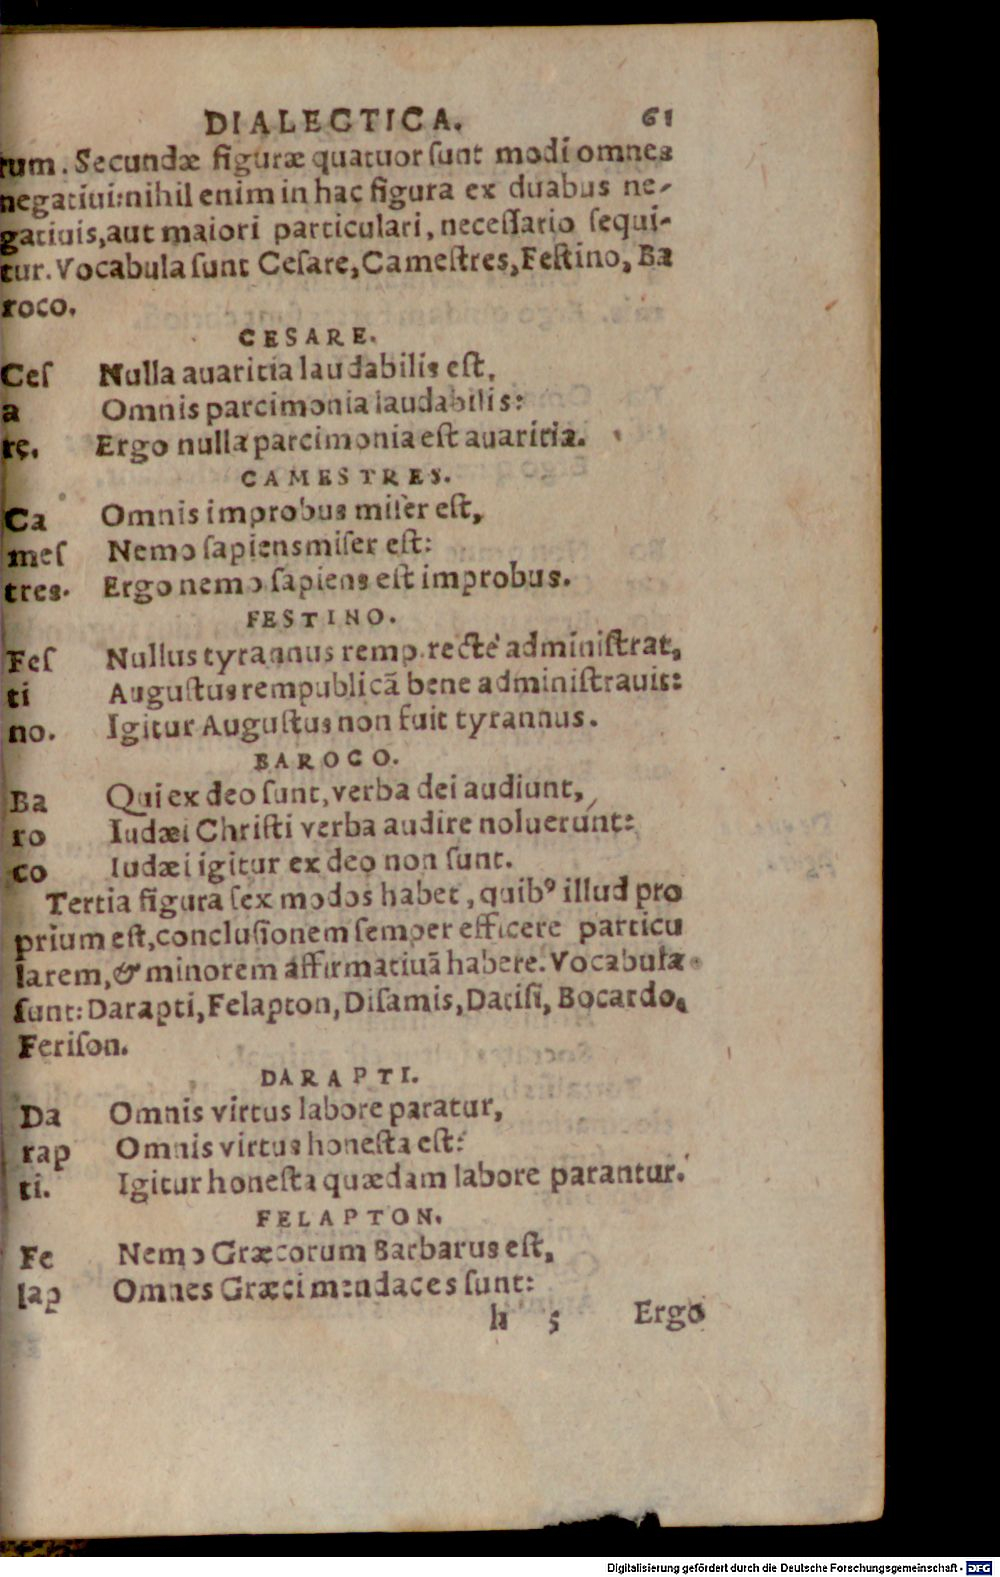 DIALECTICA. 61
tum. Secundæ figuræ quatuor ſunt modi omnes
negatiui:nihil enim in hac figura ex duabus ne-
gatiuis,aut maiori particulari, neceſſario ſequi-
tur. Vocabula ſunt Ceſare, Cameſtres, Feſtino, Ba
roco.
CESARE.
Ceſ Nulla auaritia laudabilis eſt,
a Omnis parcimonia laudabilis:
re. Ergo nulla parcimonia eſt auaritia.
CAMESTRES.
Ca Omnis improbus miſer eſt,
meſ Nemo ſapiens miſer eſt:
tres. Ergo nemo ſapiens eſt improbus.
FESTINO.
Feſ Nullus tyrannus remp. rectè adminiſtrat,
ti Auguſtus rempublicã bene adminiſtrauit:
no. Igitur Auguſtus non fuit tyrannus.
BAROCO.
Ba Qui ex deo ſunt, verba dei audiunt,
ro Iudæi Chriſti verba audire noluerunt:
co Iudæi igitur ex deo non ſunt.
Tertia figura ſex modos habet, quibꝰ illud pro
prium eſt, concluſionem ſemper efficere particu
larem, & minorem affirmatiuã habere. Vocabula
ſunt: Darapti, Felapton, Diſamis, Datiſi, Bocardo,
Feriſon.
DARAPTI.
Da Omnis virtus labore paratur,
rap Omnis virtus honeſta eſt:
ti. Igitur honeſta quædam labore parantur.
FELAPTON.
Fe Nemo Græcorum Barbarus eſt,
lap Omnes Græci mendaces ſunt:
h 5 Ergo
Digitalisierung gefördert durch die Deutsche Forschungsgemeinschaft - DFG